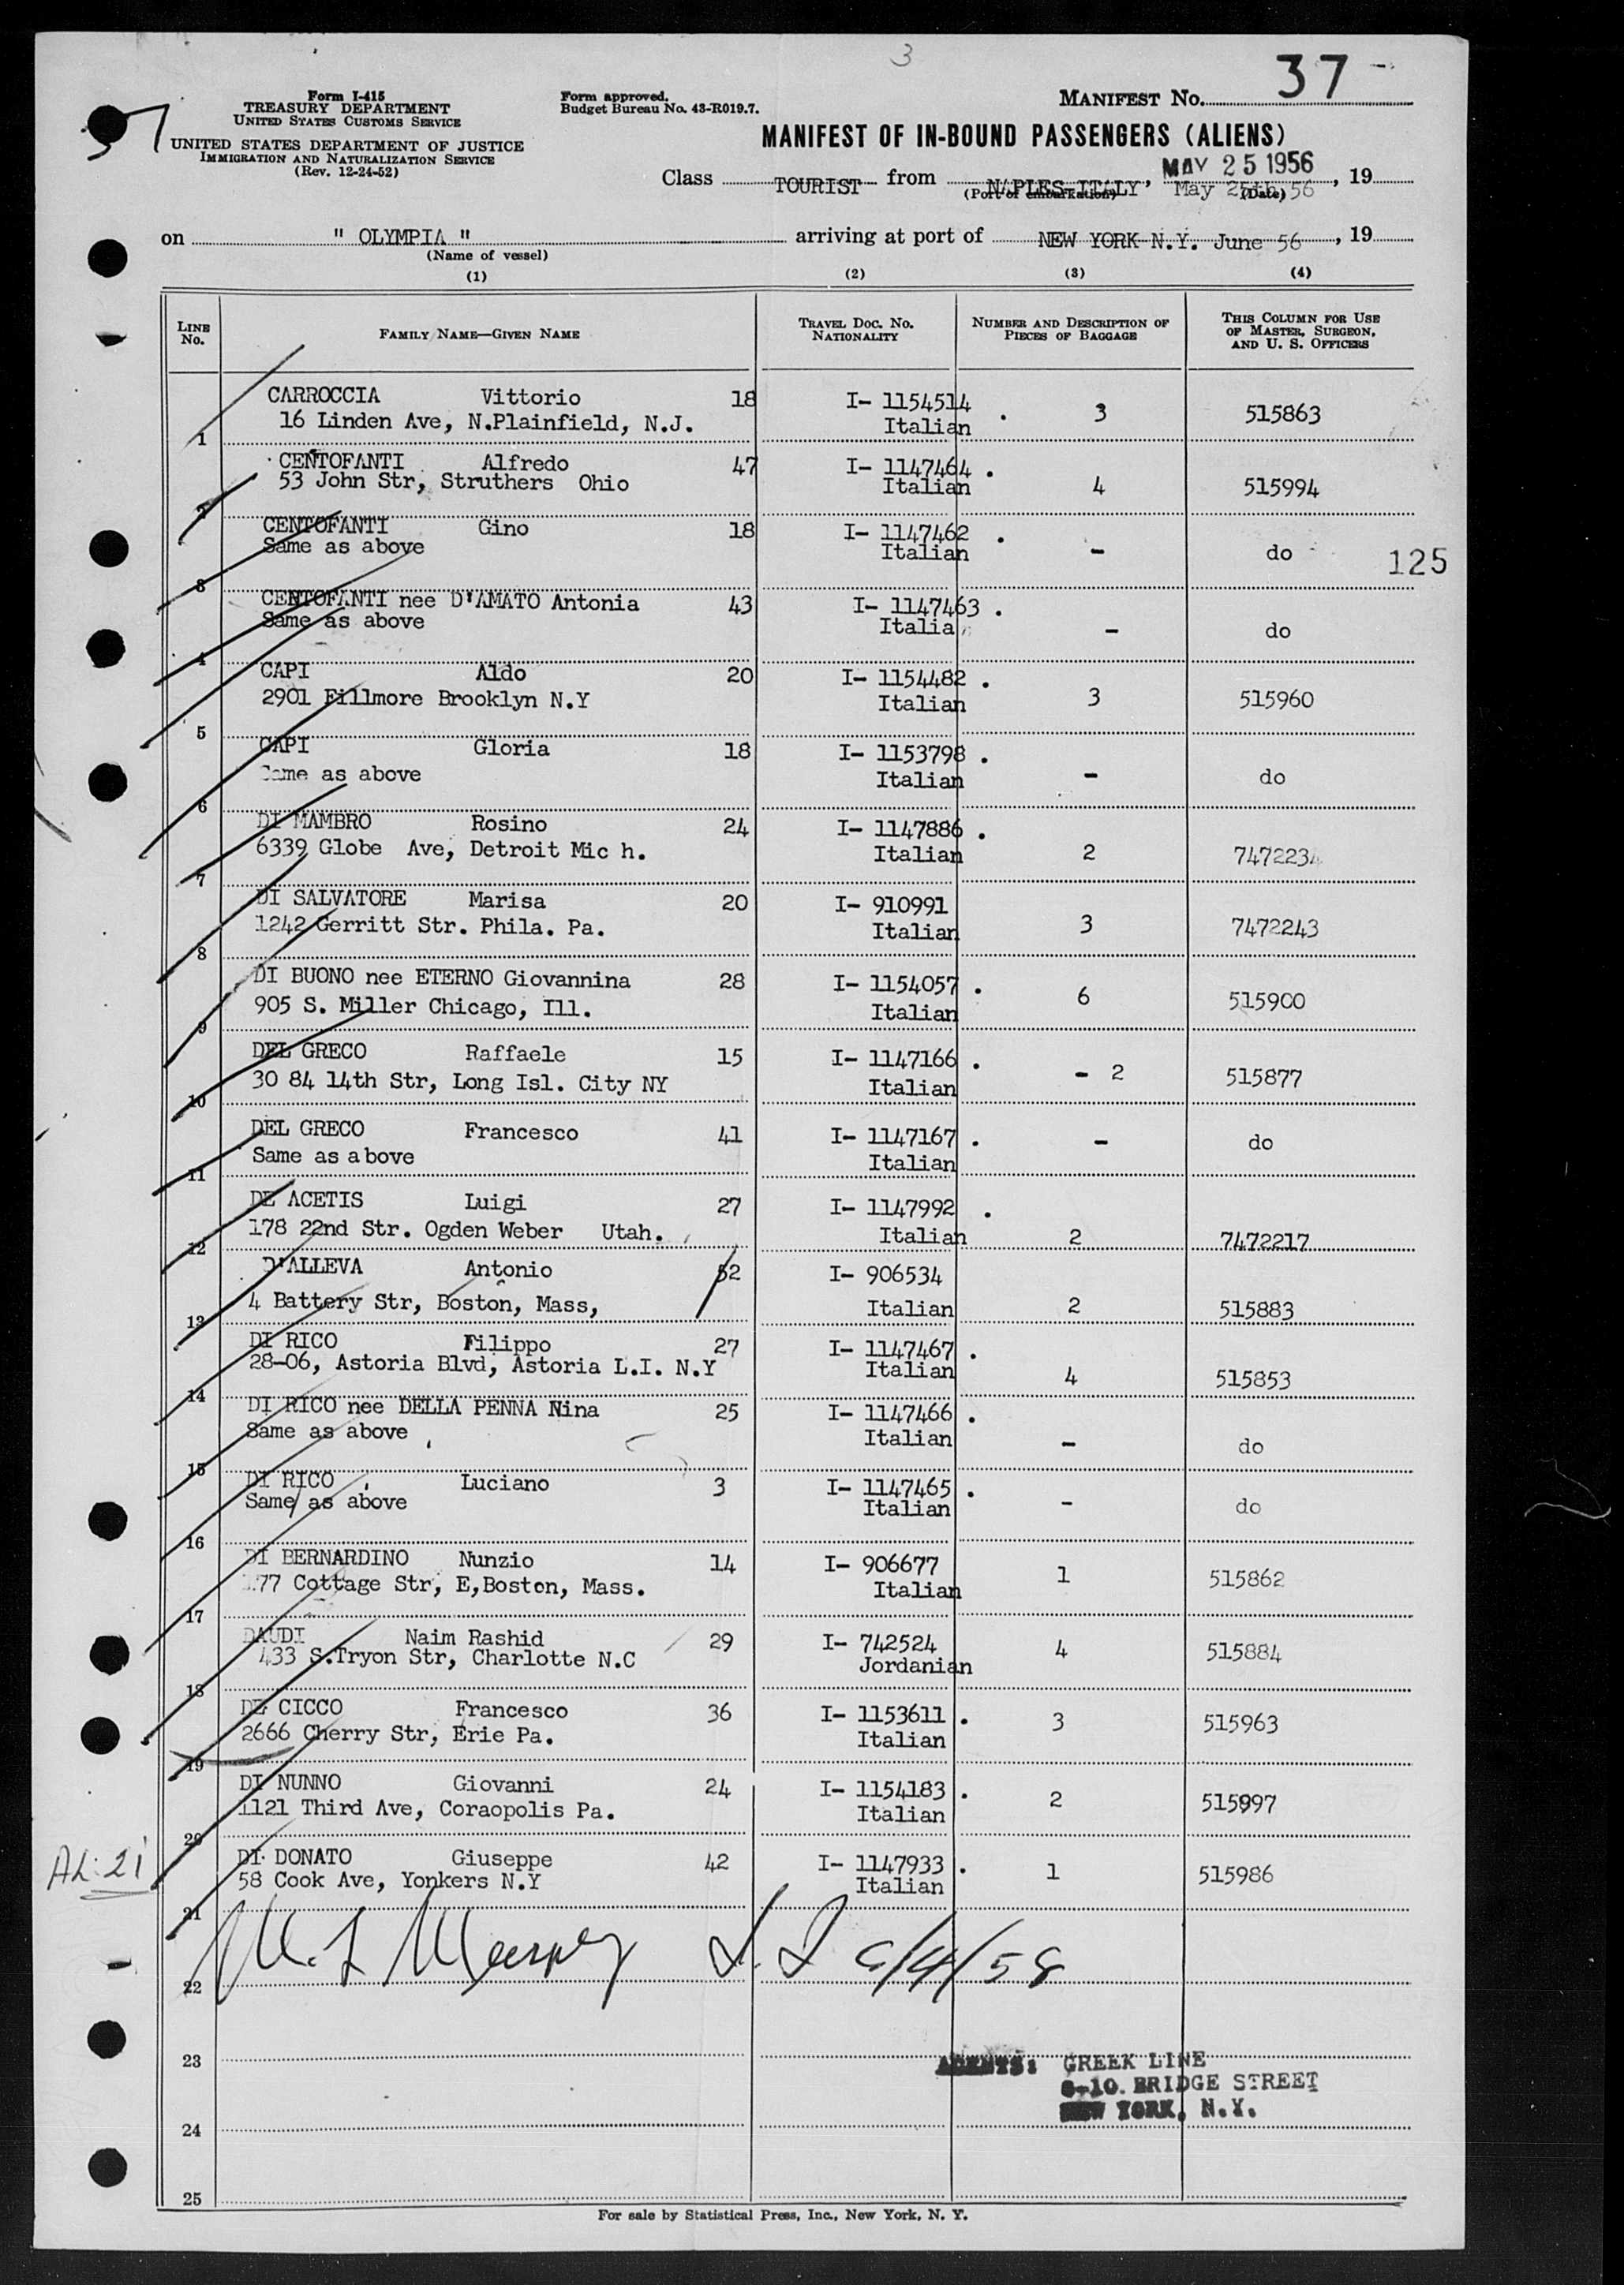 3
37
Form I-415
TREASURY DEPARTMENT
UNITED STATES CUSTOMS SERVICE
UNITED STATES DEPARTMENT OF JUSTICE
IMMIGRATION AND NATURALIZATION SERVICE
(Rev. 12-24-52)
Form approved.
Budget Bureau No. 43-R019.7.
MANIFEST No.
MANIFEST OF IN-BOUND PASSENGERS (ALIENS)
MAY 25 1956
Class TOURIST from NAPLES-ITALY, May 25th 56, 19
(Port of embarkation) (Date)
on " OLYMPIA " arriving at port of NEW YORK N.Y. June 56, 19
(Name of vessel)
(1) (2) (3) (4)
LINE No. FAMILY NAME—GIVEN NAME TRAVEL DOC. NO. NATIONALITY NUMBER AND DESCRIPTION OF PIECES OF BAGGAGE THIS COLUMN FOR USE OF MASTER, SURGEON, AND U. S. OFFICERS
CARROCCIA Vittorio 18 I- 1154514 . 3 515863
1 16 Linden Ave, N.Plainfield, N.J. Italian
CENTOFANTI Alfredo 47 I- 1147464 . 4 515994
2 53 John Str, Struthers Ohio Italian
CENTOFANTI Gino 18 I- 1147462 . - do
3 Same as above Italian
125
CENTOFANTI nee D'AMATO Antonia 43 I- 1147463 . - do
4 Same as above Italia
CAPI Aldo 20 I- 1154482 . 3 515960
5 2901 Fillmore Brooklyn N.Y Italian
CAPI Gloria 18 I- 1153798 . - do
6 Same as above Italian
DI MAMBRO Rosino 24 I- 1147886 . 2 7472234
7 6339 Globe Ave, Detroit Mic h. Italian
DI SALVATORE Marisa 20 I- 910991 3 7472243
8 1242 Gerritt Str. Phila. Pa. Italian
DI BUONO nee ETERNO Giovannina 28 I- 1154057 . 6 515900
9 905 S. Miller Chicago, Ill. Italian
DEL GRECO Raffaele 15 I- 1147166 . - 2 515877
10 30 84 14th Str, Long Isl. City NY Italian
DEL GRECO Francesco 41 I- 1147167 . - do
11 Same as above Italian
DE ACETIS Luigi 27 I- 1147992 . 2 7472217
12 178 22nd Str. Ogden Weber Utah. Italian
D'ALLEVA Antonio 52 I- 906534 2 515883
13 4 Battery Str, Boston, Mass, Italian
DI RICO Filippo 27 I- 1147467 . 4 515853
14 28-06, Astoria Blvd, Astoria L.I. N.Y Italian
DI RICO nee DELLA PENNA Nina 25 I- 1147466 . - do
15 Same as above Italian
DI RICO Luciano 3 I- 1147465 . - do
16 Same as above Italian
DI BERNARDINO Nunzio 14 I- 906677 1 515862
17 177 Cottage Str, E,Boston, Mass. Italian
DAUDI Naim Rashid 29 I- 742524 4 515884
18 433 S.Tryon Str, Charlotte N.C Jordanian
DE CICCO Francesco 36 I- 1153611 . 3 515963
19 2666 Cherry Str, Erie Pa. Italian
DI NUNNO Giovanni 24 I- 1154183 . 2 515997
20 1121 Third Ave, Coraopolis Pa. Italian
DI DONATO Giuseppe 42 I- 1147933 . 1 515986
21 58 Cook Ave, Yonkers N.Y Italian
AL: 21
22
23
AGENTS: GREEK LINE
8-10. BRIDGE STREET
NEW YORK, N.Y.
24
25
For sale by Statistical Press, Inc., New York, N. Y.